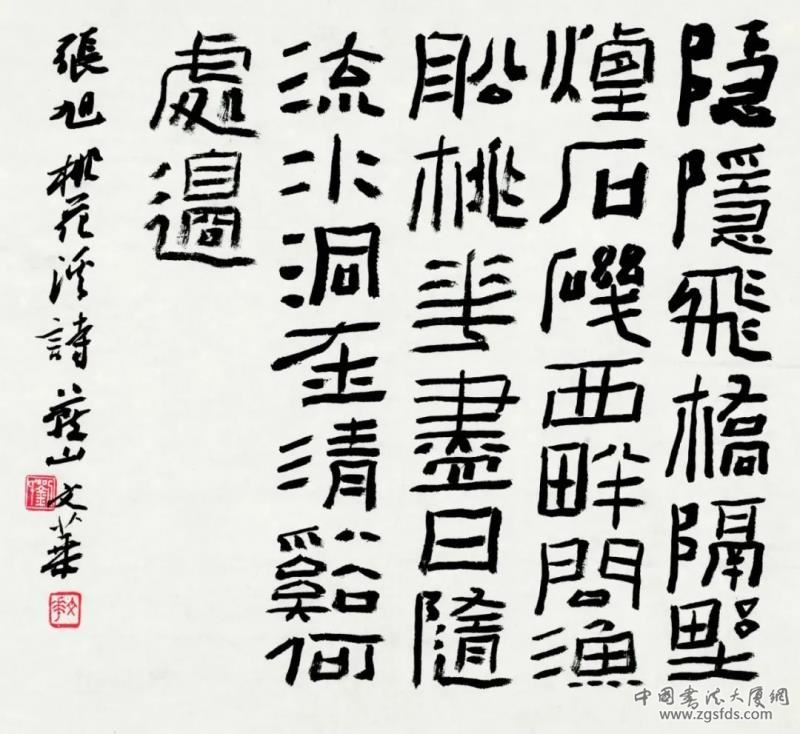 隐隱飛橋隔野
煙石磯西畔問漁
舩桃華盡日隨
流水洞在清谿何
處邊
張旭桃花溪詩 山文華
劉
中国书法大厦網
www.zgsfds.com